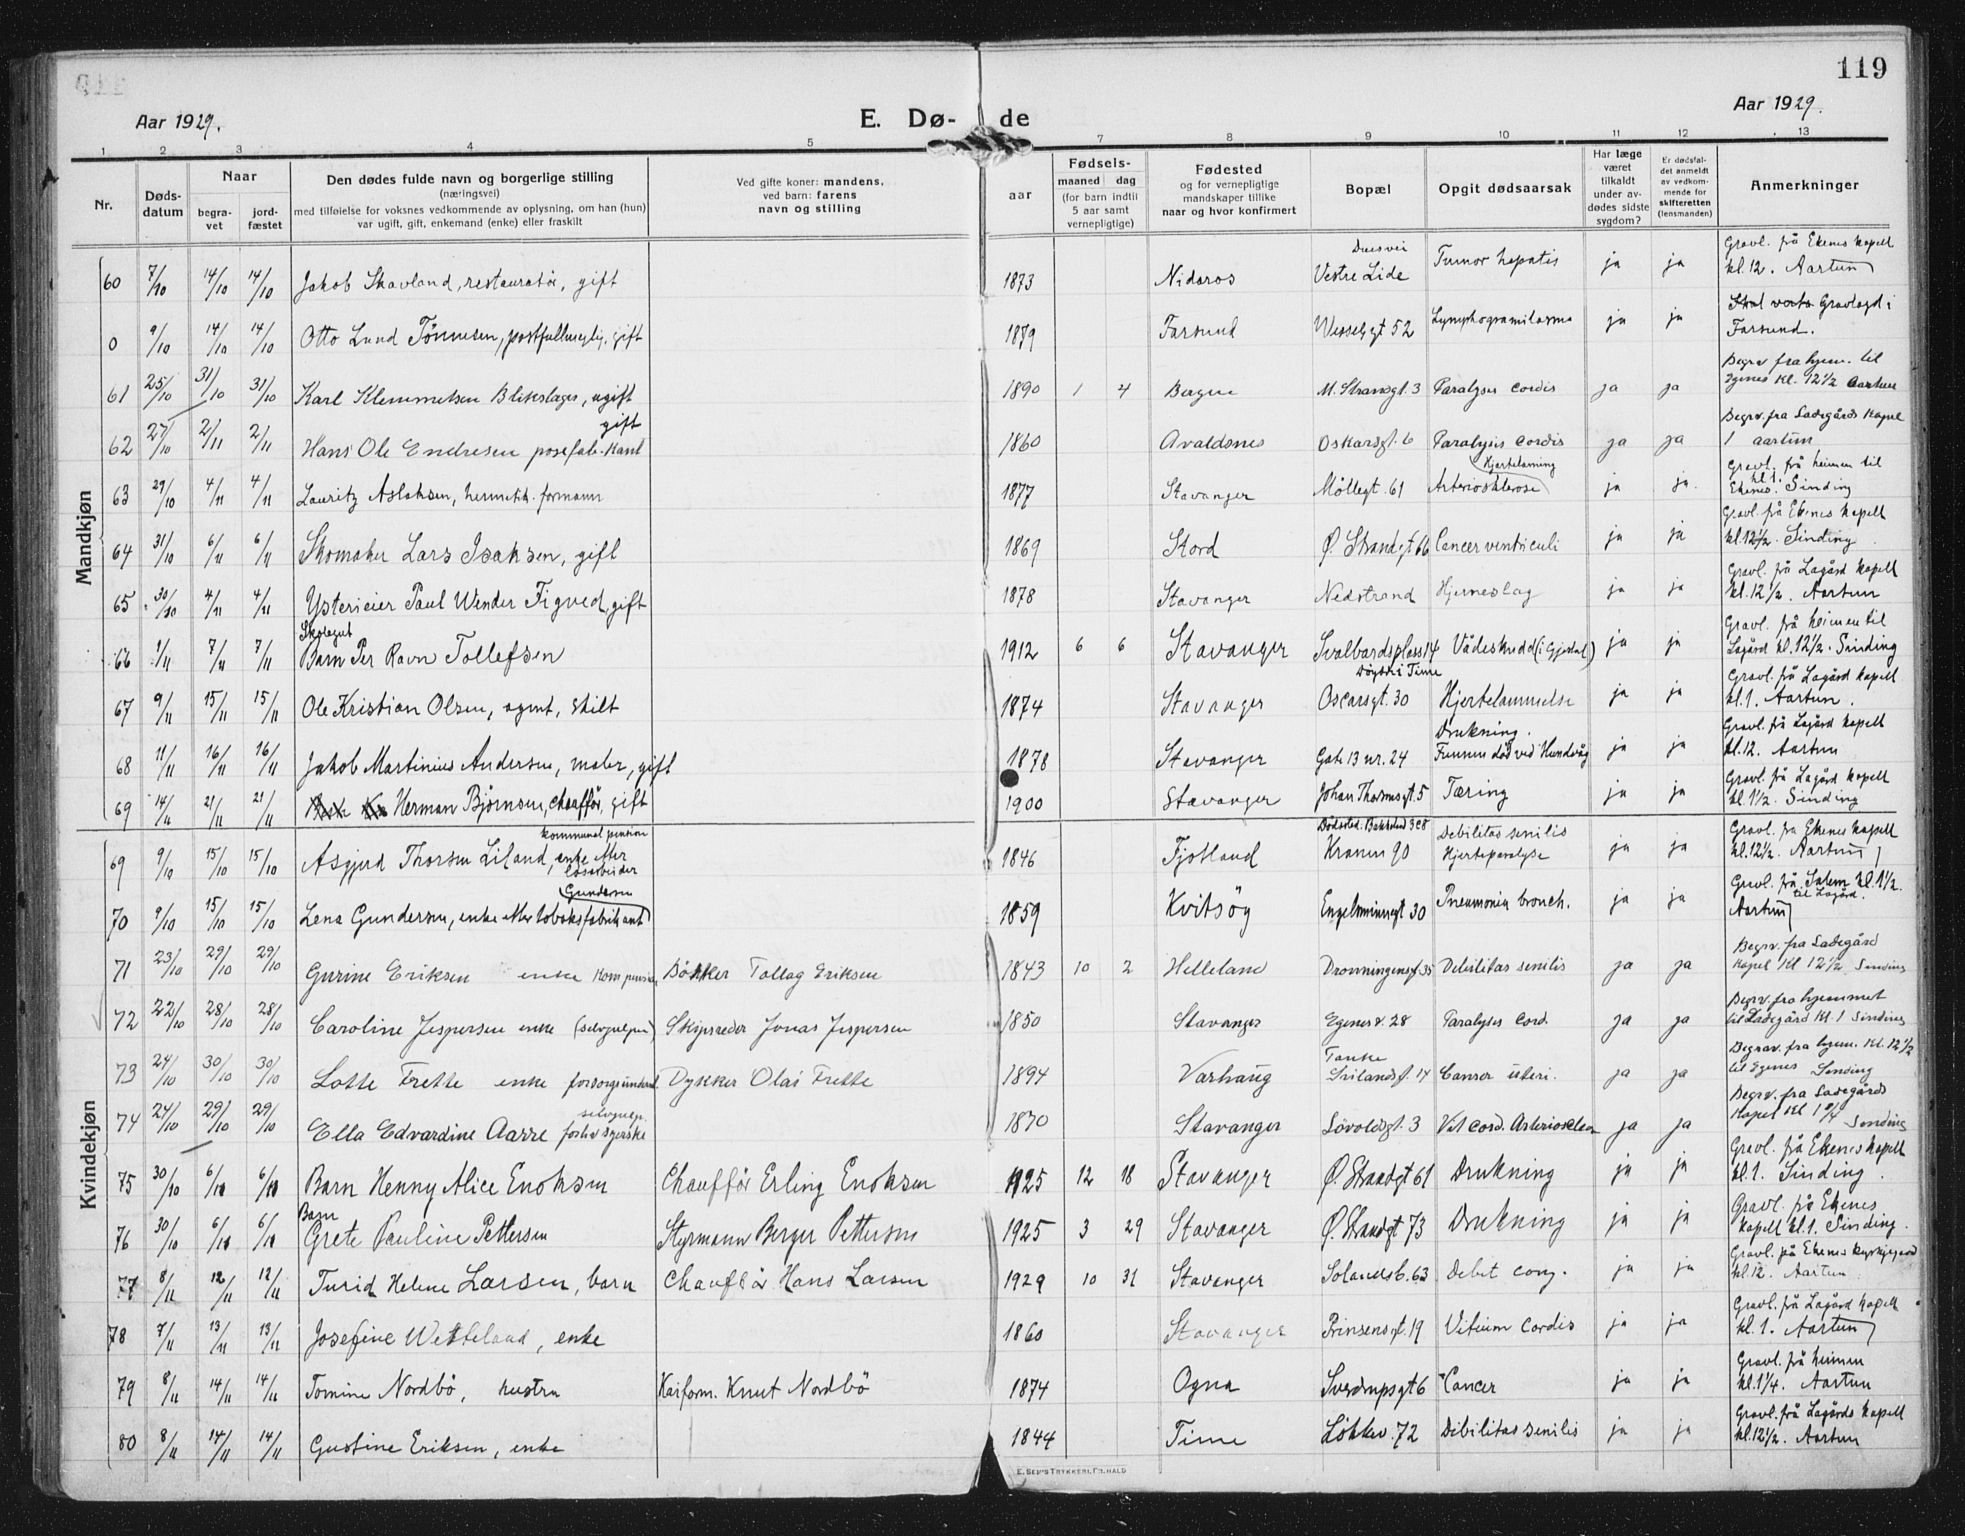 119
Aar 1929.
E. Dø- de
Aar 1929.
1 2 3 4 5 7 8 9 10 11 12 13
Nr.
Døds-
datum
Naar
begra-
vet
jord-
fæstet
Den dødes fulde navn og borgerlige stilling
(næringsvei)
med tilføielse for voksnes vedkommende av oplysning, om han (hun)
var ugift, gift, enkemand (enke) eller fraskilt
Ved gifte koner: mandens,
ved barn: farens
navn og stilling
Fødsels-
aar
maaned dag
(for barn indtil
5 aar samt
vernepligtige)
Fødested
og for vernepligtige
mandskaper tillike
naar og hvor konfirmert
Bopæl
Opgit dødsaarsak
Har læge
været
tilkaldt
under av-
dødes sidste
sygdom?
Er dødsfal-
det anmeldt
av vedkom-
mende for
skifteretten
(lensmanden)
Anmerkninger
Mandkjøn
60 7/10 14/10 14/10 Jakob Skavland, restauratør, gift 1873 Nidaros Vestre Lide Tumor hepatis ja ja Gravl. frå Ekenes kapell
kl. 12. Aartun
0 9/10 14/10 14/10 Otto Lund Tønnesen, gift 1879 Farsund Wesselsgt 52 ja ja Skal verta Gravlagd i
Farsund.
61 25/10 31/10 31/10 Karl Klemmetsen Blikslager, ugift 1890 1 4 M. Strandgt. 3 Paralysis cordis ja ja Begrv fra hjem. til
Egenes kl. 12 1/2 Aartun
gift
62 27/10 2/11 2/11 Hans Ole Endresen 1860 Avaldsnes Oskarsgt. 6 Paralysis cordis ja ja Begrv. fra Ladegårds kapel
1 aartun
63 29/10 4/11 4/11 Lauritz Aslaksen, hermetik. formann 1877 Stavanger Møllegt. 61 Arteriosklerose ja ja. Gravl. frå heimen til
kl 1.
Ekenes. Sinding
64 31/10 6/11 6/11 Skomaker Lars Isaksen, gift 1869 Stord Ø. Strandgt 66 Cancer ventriculi ja ja Gravl. frå Ekenes kapell
kl. 12 1/2. Sinding
65 30/10 4/11 4/11 Ystericier Paul Wender Figved, gift 1878 Stavanger Nedstrand Hjerneslag ja ja Gravl. frå Lagård kapell
kl. 12 1/2. Aartun
Skolegut
66 1/11 7/11 7/11 Barn Per Ravn Tollefsen 1912 6 6 Stavanger Svalbardsplass 14 Vådeskudd (i Gjestal) ja ja Gravl. frå heimen til
Lagård kl. 12 1/2. Sinding
67 9/11 15/11 15/11 Ole Kristian Olsen, agent, skilt 1874 Stavanger Oscarsgt. 30 Hjertelammelse ja ja Gravl. frå Lagård kapell
kl. 1. Aartun.
68 11/11 16/11 16/11 Jakob Martinius Andersen, maler, gift 1878 Stavanger Gate 13 nr. 24 Drukning.
Funnen død ved Hundvåg ja ja Gravl. frå Lagård kapell
kl. 12. Aartun
69 14/11 21/11 21/11 Herman Bjørnsen, chauffør, gift 1900 Stavanger Johan Thorsensgt. 5 Tæring ja ja Gravl. frå Lagård kapell
kl. 1 1/2. Sinding
Kvindekjøn
69 9/10 15/10 15/10 Asgjerd Thorsen Liland, enke etter
løsarbeider kommunal pension 1846 Fjotland Kranen 90 Debilitas senilis
Hjerteparalyse ja ja Gravl. frå Ekenes kapell
kl. 12 1/2. Aartun
70 9/10 15/10 15/10 Lena Gundersen, enke etter tobaksfabrikant Gundersen 1859 Kvitsøy Engelsminnegt 30 Pneumonia bronch. ja ja Gravl. frå Salem kl. 1 1/2.
til Lagård.
Aartun
71 23/10 29/10 29/10 Gurine Eriksen enke kom pension Bøkker Tollag Eriksen 1843 10 2 Helleland Dronningensgt. 35 Debilitas senilis ja ja Begrv. fra Ladegård
kapel kl 12 1/2 Sinding
72 22/10 28/10 28/10 Caroline Jespersen enke Skipsreder Jonas Jespersen 1850 Stavanger Egenes v. 28 Paralysis Cord. ja ja Begrv. fra hjemmet
til Ladegård kl. 1 Sinding
73 24/10 30/10 30/10 Lotte Frette enke Dykker Olai Frette 1894 Varhaug Tanke
14 Cancer uteri. ja ja Begrav. fra hjem. kl. 12 1/2
til Egenes Sinding
74 24/10 29/10 29/10 Ella Edvardine Aarre 1870 Stavanger Løvoldsgt. 3 Vit cord. Arterioscler ja ja Begrv. fra Ladegårds
Kapel kl 1 Sinding
75 30/10 6/11 6/11 Barn Henny Alice Enoksen Chauffør Erling Enoksen 1925 12 18 Stavanger Ø. Strandgt 61 Drukning ja ja Gravl. frå Ekenes kapell
kl. 1. Sinding.
Barn
76 30/10 6/11 6/11 Grete Pauline Pettersen Styrmann Berger Pettersen 1925 3 29 Stavanger Ø. Strandgt 73 Drukning ja ja Gravl. frå Ekenes
kapell kl. 1. Sinding.
77 8/11 12/11 12/11 Turid Helene Larsen, barn Chauffør Hans Larsen 1929 10 31 Stavanger Solandsb. 63 Debit cong. ja ja Gravl. på Ekenes kyrkjegard
kl. 12. Aartun
78 7/11 13/11 13/11 Josefine Wetteland, enke 1860 Stavanger Prinsensgt. 19 Vitium Cordis ja ja Gravl. frå Lagård kapell
kl. 1. Aartun
79 8/11 14/11 14/11 Tomine Nordbø, hustru Kaiform. Knut Nordbø 1874 Ogna Sverdrupsgt 6 Cancer ja ja Gravl. frå heimen
kl. 1 1/4. Aartun
80 8/11 14/11 14/11 Gustine Eriksen, enke 1844 Time Løkkev. 72 Debilitas senilis ja ja Gravl. frå Lagårds kapell
kl. 12 1/2. Aartun
E. SEM'S TRYKKERI, FR.HALD